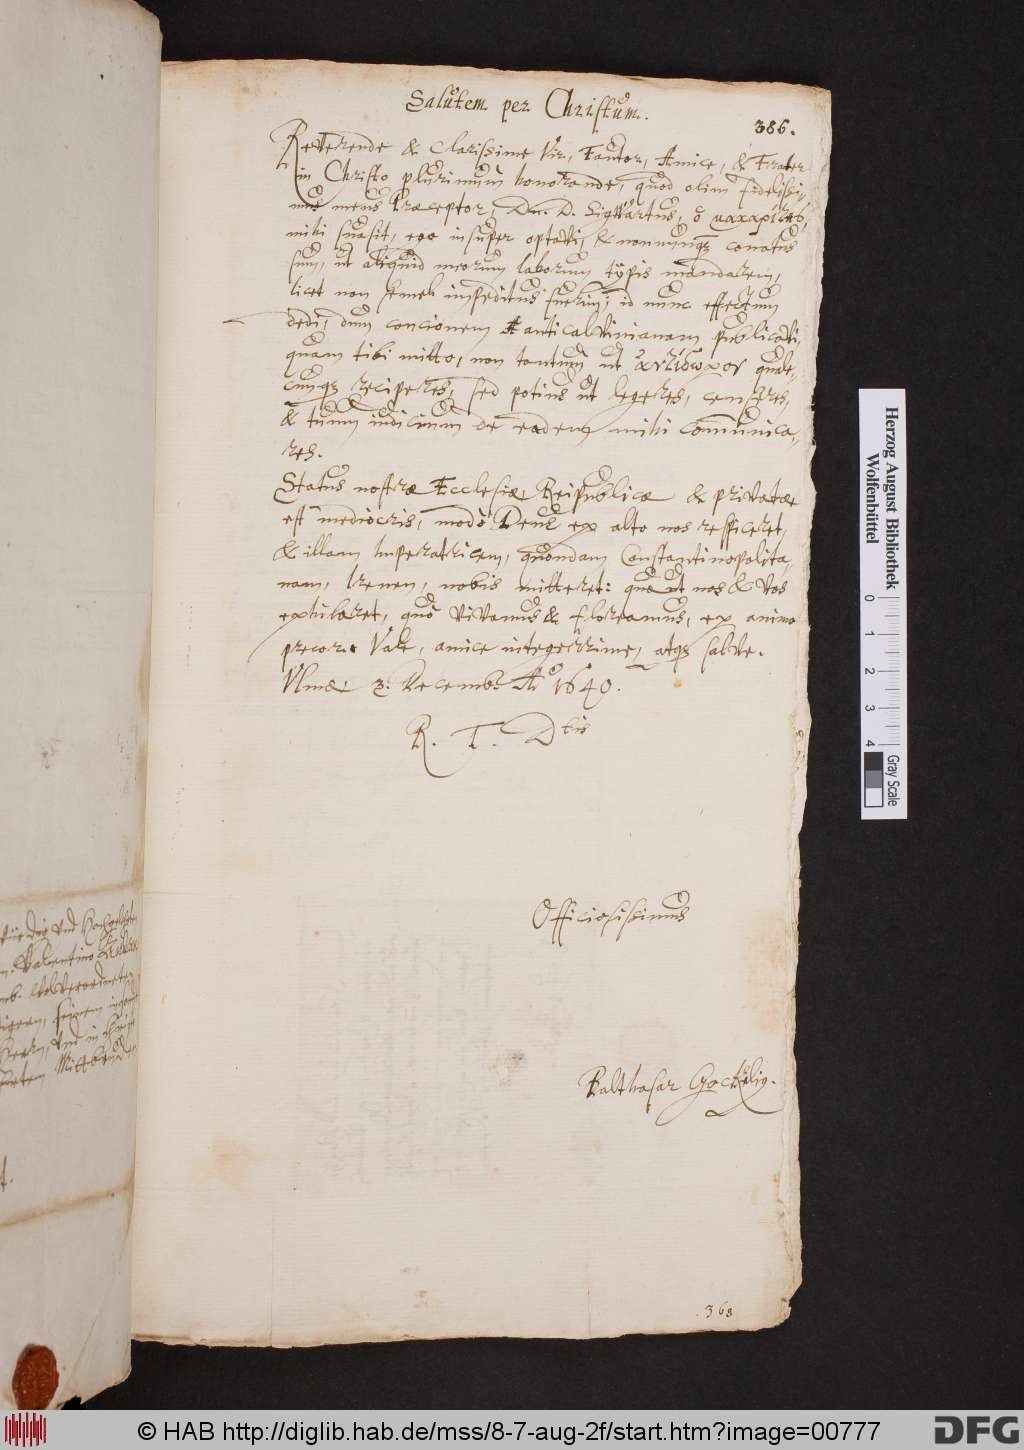 Salutem per Christum.
386.
Reverende & Clarissime Vir, Fautor, Amice, & Frater
in Christo plurimum honorande, quod olim fidelissi-
mus meus Praeceptor, Dn. D. Sigwartus, ὁ μακαρίτης,
mihi suasit, ego insuper optavi, & nonnunq; conatus
sum, ut aliquid meorum laborum typis mandarem,
licet non semel impeditus fuerim; id nunc effectum
dedi, dum concionem Anticalvinianam publicavi,
quam tibi mitto, non tantum ut ἀντίδωρον quale-
cunq; reciperes, sed potius ut legeres, censeres,
& tuum iudicium de eadem mihi communica-
res.
Status nostrae Ecclesiae Reipublicae & privatae
est mediocris, modò Deus ex alto nos respiceret,
& illam Imperatricem, quondam Constantinopolita-
nam, Irenen, nobis mitteret: quae ut nos & vos
exhilaret, quò vivamus & floreamus, ex animo
precor. Vale, amice integerrime, atq; salve.
Ulmae 3. Decemb. Aº 1640.
R. T. Dtis
Officiosissimus
Balthasar Gockelig.
368
Valentino
Herzog August Bibliothek
Wolfenbüttel
0 1 2 3 4
Gray Scale
© HAB http://diglib.hab.de/mss/8-7-aug-2f/start.htm?image=00777
DFG